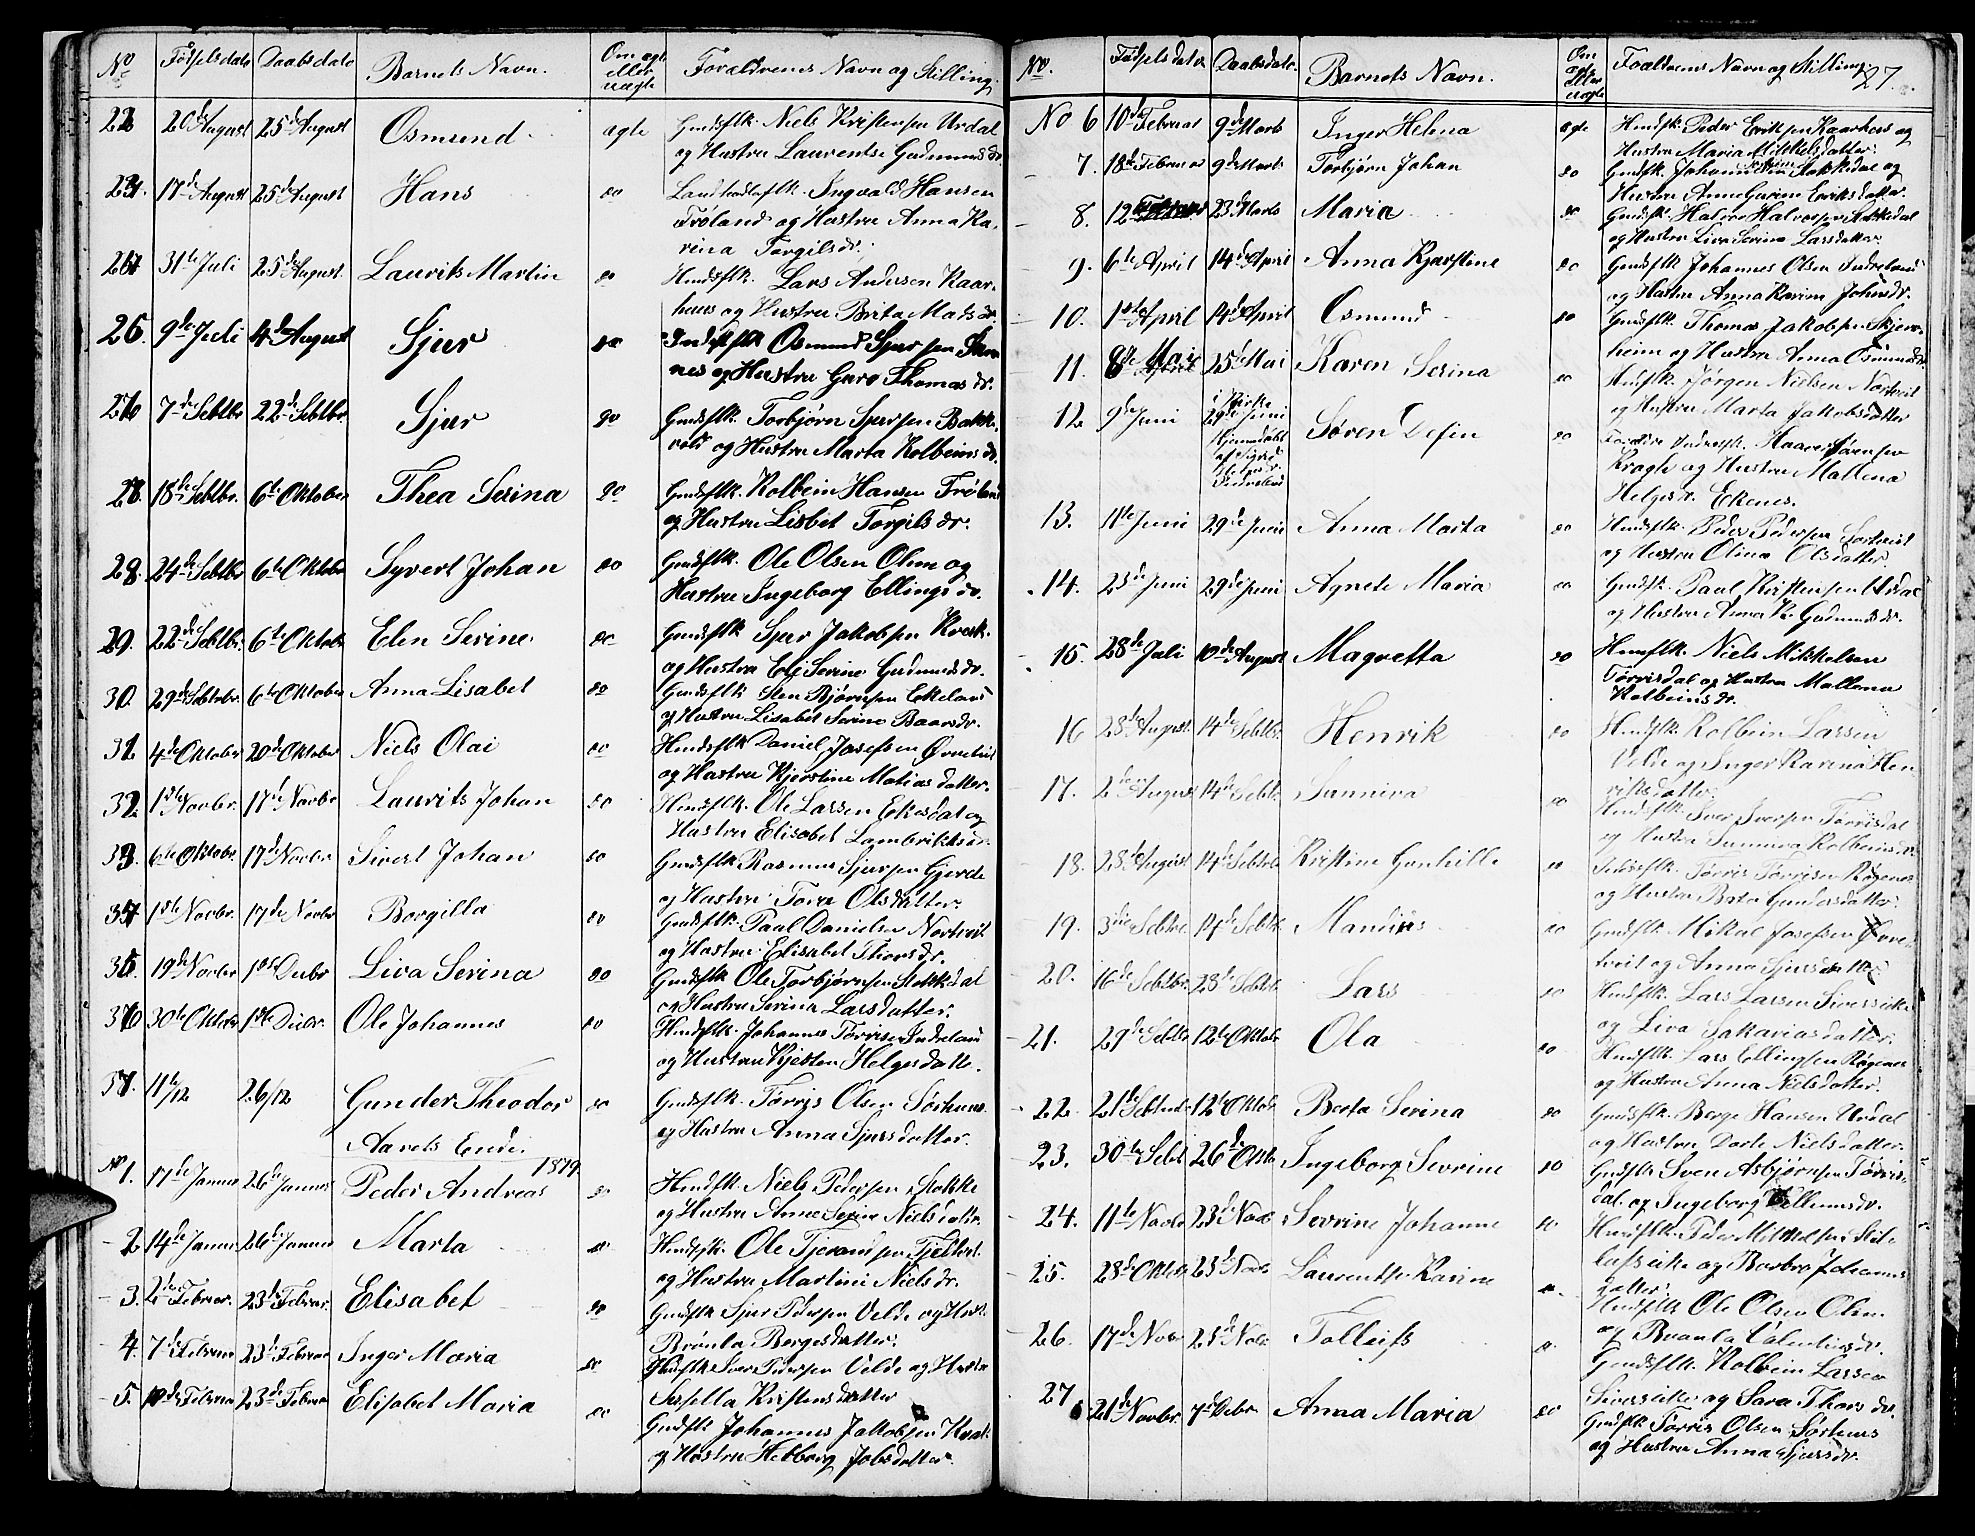 No Fødselsdato Daabsdato Barnets Navn. Om ægte eller uægte Forældrenes Navn og Stilling.
22 20de August 25de August Osmund ægte Gmdsflk. Niels Kristensen Urdal
og Hustru Laurentse Gudmundsdr.
23. 17de August 25de August Hans do Ingvald Hansen
Frøland og Hustru Anna Ka-
rina Torgilsdr.
24 31te Juli 25de August. Laurits Martin do Hmdsflk. Lars Andersen Kaar-
huus og Hustru Brita Madsdr.
25. 9de Juli 4de August Sjur do Osmund Sjursen
nes og Hustru Guro Thomasdr.
26 7de Sebtbr 22de Sebtbr. Sjur do Gmdsflk. Torbjørn Sjursen Bakke-
vold og Hustru Marta Kolbeinsdr.
27. 18de Sebtbr. 6te Oktober Thea Serina do Gmdsflk. Kolbein Hansen Frøland
og Hustru Lisbet Torgilsdr.
28. 24de Sebtbr 6te Oktober Syvert Johan do Gmdsflk. Ole Olsen Olim og
Hustru Ingeborg Ellingsdr.
29. 22de Sebtbr. 6te Oktobr Elen Serine do Gmdsflk Sjur Jakobsen
og Hustru Eli Serine Gudmundsdr.
30. 29de Sebtobr. 6te Oktober Anna Lisabet do Gmdsflk Sten Bjørnsen Ekeland
og Hustru Lisabet Serine Baarsdr.
31. 4de Oktober 20de Oktober Niels Olai do Hmdsflk Daniel Josefsen Ørnetveit
og Hustru Kjerstine Matiasdatter.
32. 1ste Novbr. 17de Novbr Laurits Johan do Hmdsflk. Ole Larsen Ekesdal og
Hustru Elisabet Lambriktsdr
33. 6te Oktobr. 17de Novbr. Sivert Johan do Gmdsflk Rasmus Sjursen Gjerde
og Hustru Tora Olsdatter.
34 1ste Novbr. 17de Novbr Borgilla do Gmdsflk. Paul Danielsen Nortveit
og Hustru Elisabet Thorsdr.
35. 19de Novbr 1ste Desbr Liva Serina do Gmdsflk Ole Torbjørnsen Stokkedal
og Hustru Serina Larsdatter.
36 30te Oktobr 1ste Desbr. Ole Johannes do Hmdsflk. Johannes Tørrisen Indreland
og Hustru Kjersten Helgesdatter.
37. 11te/12 26/12 Gunder Theodor do Gmdsflk. Tørris Olsen Sørhuus
og Hustru Anna Sjursdatter.
Aarets Ende.
1879
No 1. 17de Januar 26de Januar Peder Andreas do Hmdsflk Niels Pedersen Stokke
og Hustru Anne Serine Nielsdatr.
2 14de Januar 26de Januar Marta do Hmdsflk. Ole Tjerandsen
og Hustru Martine Nielsdr.
3. 2den Februar. 23de Februar. Elisabet do Gmdsflk Sjur Pedersen Velde og Hust.
Brønla Børgesdatter.
4. 7de Februar 23de Februar Inger Maria do Iver Pedersen Velde og Hustru
Sissella Kristensdatter
5. 10de Februar 23de Februar Elisabet Maria do Gmdsflk Johannes Jakobsen
og Hustru Jobsdatter.
No. Fødselsdato Daabsdato. Barnets Navn. Om ægte eller uægte Forældrenes Navn og Stilling. 27.
No 6 10de Februar 9de Marts Inger Helena ægte Hmdsflk. Peder Eriksen Kaarhus og
Hustru Maria Mikkelsdatter.
7. 18de Februar 9de Marts Torbjørn Johan do Gmdsflk. Johannes Stokkedal og
Hustru Anna Guren Eriksdatter.
8. 12 Februar 23de Marts Maria do Gmdsflk. Halvor Halvorsen Stokkedal
og Hustru Liva Serina Larsdatter.
9. 6te April 14de April Anna Kjerstine do Gmdsflk Johannes Olsen Indreland
og Hustru Anna Karine Johnsdr.
10. 1ste April 14de April Osmund do Gmdsflk. Thomas Jakobsen Skjerv-
heim og Hustru Anna Osmundsdr.
11. 8de Mai 25de Mai Karen Serina do Hmdsflk. Jørgen Nielsen Nortveit
og Hustru Marta Jakobsdatter
12 9de Juni i Kirke 29de Juni Hjemmedøbt af Sigrid Indreland Søren Defin do
Kragle og Hustru Mallena
Helgesdr. Ekenes.
13. 11te Juni 29de Juni Anna Marta do Hmdsflk. Peder Pedersen
og Hustru Olina Olsdatter.
14. 23de Juni 29de Juni Agnete Maria do Gmdsflk. Paul Kristensen Urdal
og Hustru Anna K. Gudmundsdr.
15. 28de Juli 10de August Magretta do Hmdsflk. Niels Mikkelsen
Tørrisdal og Hustru Mallena
Kolbeinsdr.
16 28de August 14de Sebtbr. Henrik do Hmdsflk. Kolbein Larsen
Velde og Inger Karina Hen-
riksdatter.
17. 2den August 14de Sebtr. Sunniva do Hmdsflk. Iver Iversen Tørrisdal
og Hustru Sunniva Kolbeinsdr.
18. 28de August 14de Sebtbr Kristine Gunhille do Tørris Tørrisen Røgenes
og Hustru Berta Gundersdatter.
19. 3die Sebtbr. 14de Sebtbr Mandius do Gmdsflk. Mikal Josefsen Ørne-
tveit og Anna Sjursdatter
20. 16de Sebtbr. 28de Sebtbr Lars do Hmdsflk. Lars Larsen Sivesvike
og Liva Sakariasdatter.
21. 29de Sebtbr 12te Oktobr Ola do Hmdsflk. Lars Ellingsen Røgenes
og Hustru Anna Nielsdatter.
22. 21de Sebtmbr 12te Oktobr Berta Serina do Gmdsflk. Børge Hansen Urdal
og Hustru Dorte Nielsdatter.
23. 30te Sebt 26de Oktbr Ingeborg Sevrine do Gmdsflk Sven Asbjørnsen Tørris-
dal og Ingeborg Villumsdr.
24. 11te Novbr 23de Novbr Sevrine Johanne do Hmdsflk. Peder Mikkelsen
og Barbro Johannes-
datter.
25. 28de Oktobr 23de Novbr Laurentse Karine do Hmdsflk Ole Olsen Olim
og Buanla Valentinsdr.
26. 17de Novbr 23de Novbr Tolleifs do Gmdsflk. Kolbein Larsen
Sivesvike og Sara Thorsdr.
27 21de Novbr. 7de Debr. Anna Maria do Gmdsflk Tørris Olsen Sørhuus
og Hustru Anna Sjursdr.